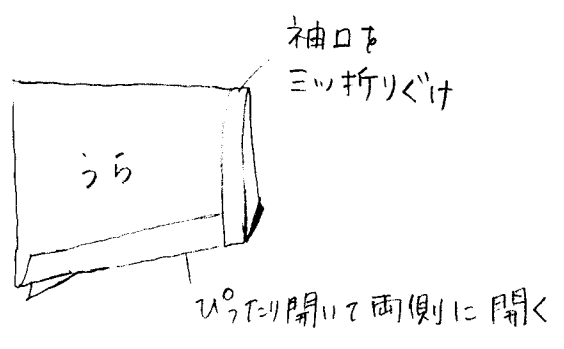 袖口を
三ツ折りぐけ
うら
ぴったり開いて両側に開く